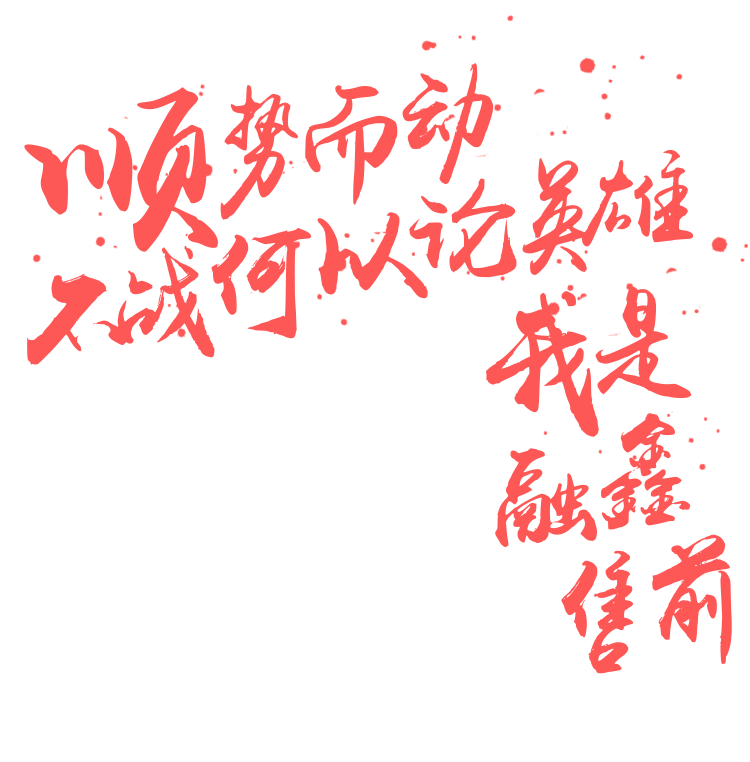 顺势而动
不战何以论英雄
我是
融鑫
售前